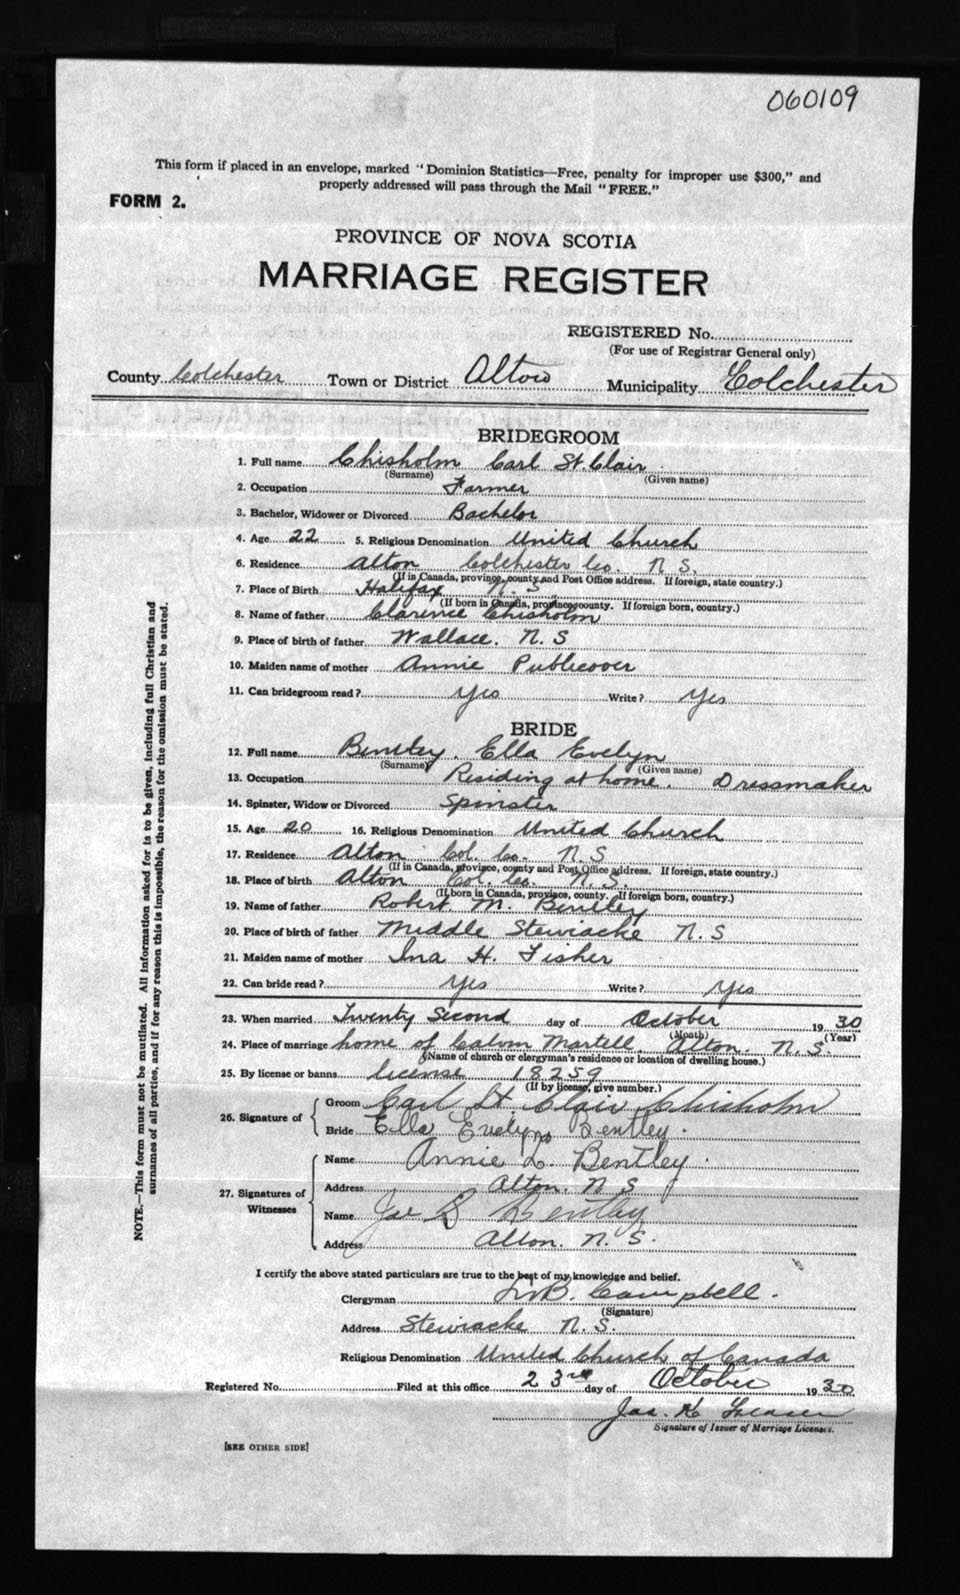 060109
This form if placed in an envelope, marked "Dominion Statistics—Free, penalty for improper use $300," and
properly addressed will pass through the Mail "FREE."
FORM 2.
PROVINCE OF NOVA SCOTIA
MARRIAGE REGISTER
REGISTERED No.
(For use of Registrar General only)
County Colchester Town or District Alton Municipality Colchester
BRIDEGROOM
1. Full name Chisholm Carl St. Clair
(Surname) (Given name)
2. Occupation Farmer
3. Bachelor, Widower or Divorced Bachelor
4. Age 22 5. Religious Denomination United Church
6. Residence Alton Colchester Co. N. S.
(If in Canada, province, county and Post Office address. If foreign, state country.)
7. Place of Birth Halifax N. S.
(If born in Canada, province, county. If foreign born, country.)
8. Name of father Clarence Chisholm
9. Place of birth of father Wallace. N. S
10. Maiden name of mother Annie Publicover
11. Can bridegroom read? Yes Write? Yes
BRIDE
12. Full name Bentley, Ella Evelyn
(Surname) (Given name)
13. Occupation Residing at home. Dressmaker
14. Spinster, Widow or Divorced Spinster
15. Age 20 16. Religious Denomination United Church
17. Residence Alton Col. Co. N. S
(If in Canada, province, county and Post Office address. If foreign, state country.)
18. Place of birth Alton Col. Co. N. S.
(If born in Canada, province, county. If foreign born, country.)
19. Name of father Robert M. Bentley
20. Place of birth of father Middle Stewiacke N. S
21. Maiden name of mother Ina H. Fisher
22. Can bride read? Yes Write? Yes
23. When married Twenty Second day of October 1930
(Month) (Year)
24. Place of marriage home of Calvin Martell, Alton. N. S.
(Name of church or clergyman's residence or location of dwelling house.)
25. By license or banns license 18259
(If by license, give number.)
26. Signature of Groom Carl St. Clair Chisholm
Bride Ella Evelyn Bentley.
27. Signatures of Witnesses
Name Annie L. Bentley.
Address Alton. N S
Name Bentley
Address Alton. N. S.
I certify the above stated particulars are true to the best of my knowledge and belief.
Clergyman B. Campbell.
(Signature)
Address Stewiacke N. S.
Religious Denomination United Church of Canada
Registered No. Filed at this office 23rd day of October 1930
Jas. K
Signature of Issuer of Marriage Licenses.
[SEE OTHER SIDE]
NOTE.—This form must not be mutilated. All information asked for is to be given, including full Christian and
surnames of all parties, and if for any reason this is impossible, the reason for the omission must be stated.